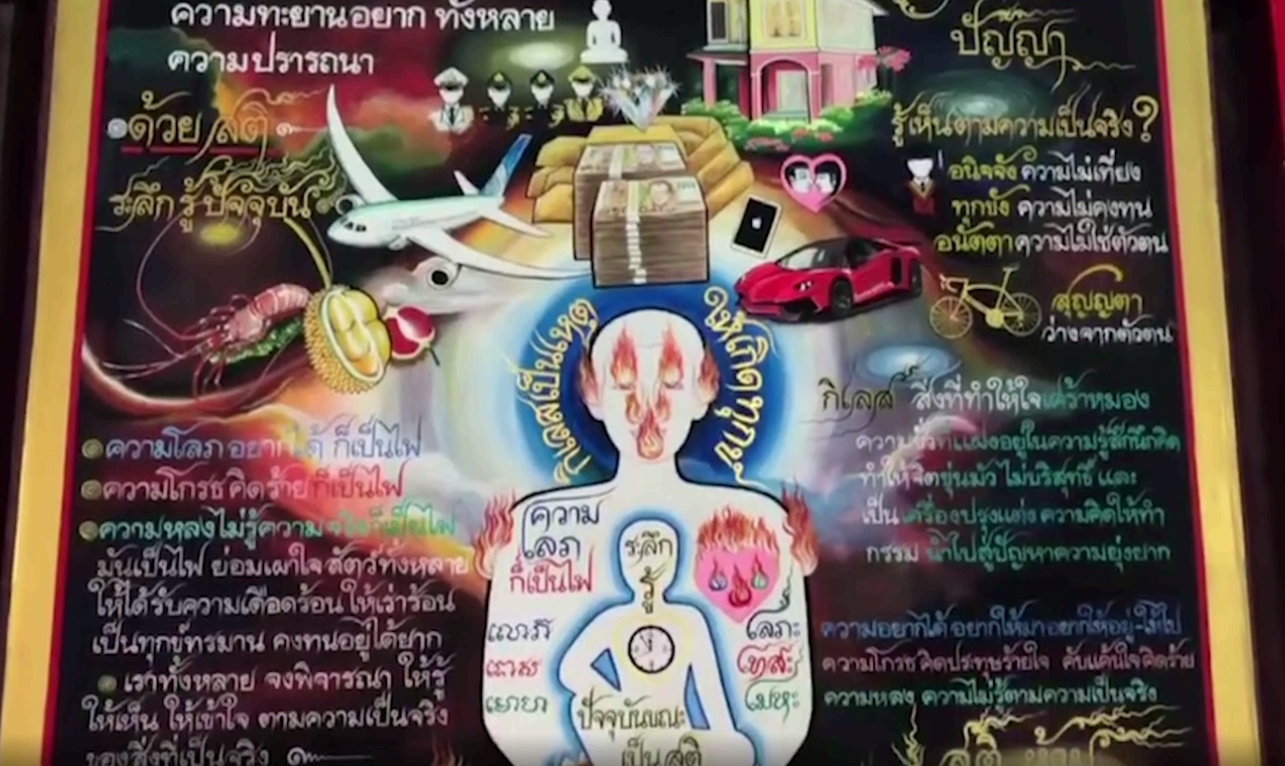 ความทะยานอยาก ทั้งหลาย
ความปรารถนา
ด้วย สติ
ระลึก รู้ ปัจจุบัน
ปัญญา
รู้เห็นตามความเป็นจริง?
อนิจจัง ความไม่เที่ยง
ทุกขัง ความไม่คงทน
อนัตตา ความไม่ใช่ตัวตน
สุญญตา
ว่างจากตัวตน
กิเลสเป็นเหตุ
ให้เกิดทุกข์
ความโลภ อยากได้ ก็เป็นไฟ
ความโกรธ คิดร้าย ก็เป็นไฟ
ความหลงไม่รู้ความจริงก็เป็นไฟ
มันเป็นไฟ ย่อมเผาใจ สัตว์ทั้งหลาย
ให้ได้รับความเดือดร้อน ให้เร่าร้อน
เป็นทุกข์ทรมาน คงทนอยู่ได้ยาก
เราทั้งหลาย จงพิจารณา ให้รู้
ให้เห็น ให้เข้าใจ ตามความเป็นจริง
ของสิ่งที่เป็นจริง
ความ
โลภ
ก็เป็นไฟ
ระลึก
รู้
โลภะ
โทสะ
โมหะ
ปัจจุบันขณะ
เป็น สติ
กิเลส สิ่งที่ทำให้ใจเศร้าหมอง
ความชั่วที่แฝงอยู่ในความรู้สึกนึกคิด
ทำให้จิตขุ่นมัว ไม่บริสุทธิ์ และ
เป็นเครื่องปรุงแต่ง ความคิดให้ทำ
กรรม นำไปสู่ปัญหาความยุ่งยาก
ความอยากได้ อยากให้มา อยากให้อยู่-ให้ไป
ความโกรธ คิดประทุษร้ายใจ คับแค้นใจ คิดร้าย
ความหลง ความไม่รู้ตามความเป็นจริง
สติ